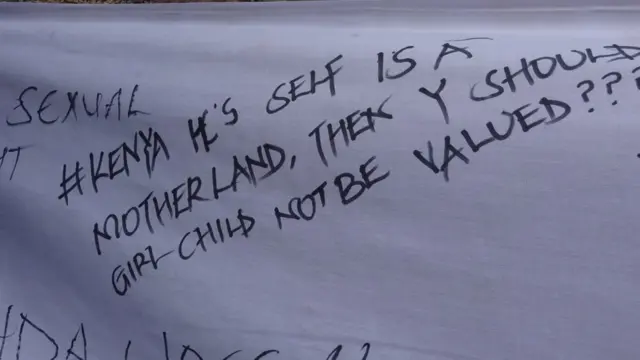 SEXUAL
#KENYA HE'S SELF IS A
MOTHERLAND, THEN Y SHOULD
GIRL-CHILD NOT BE VALUED???